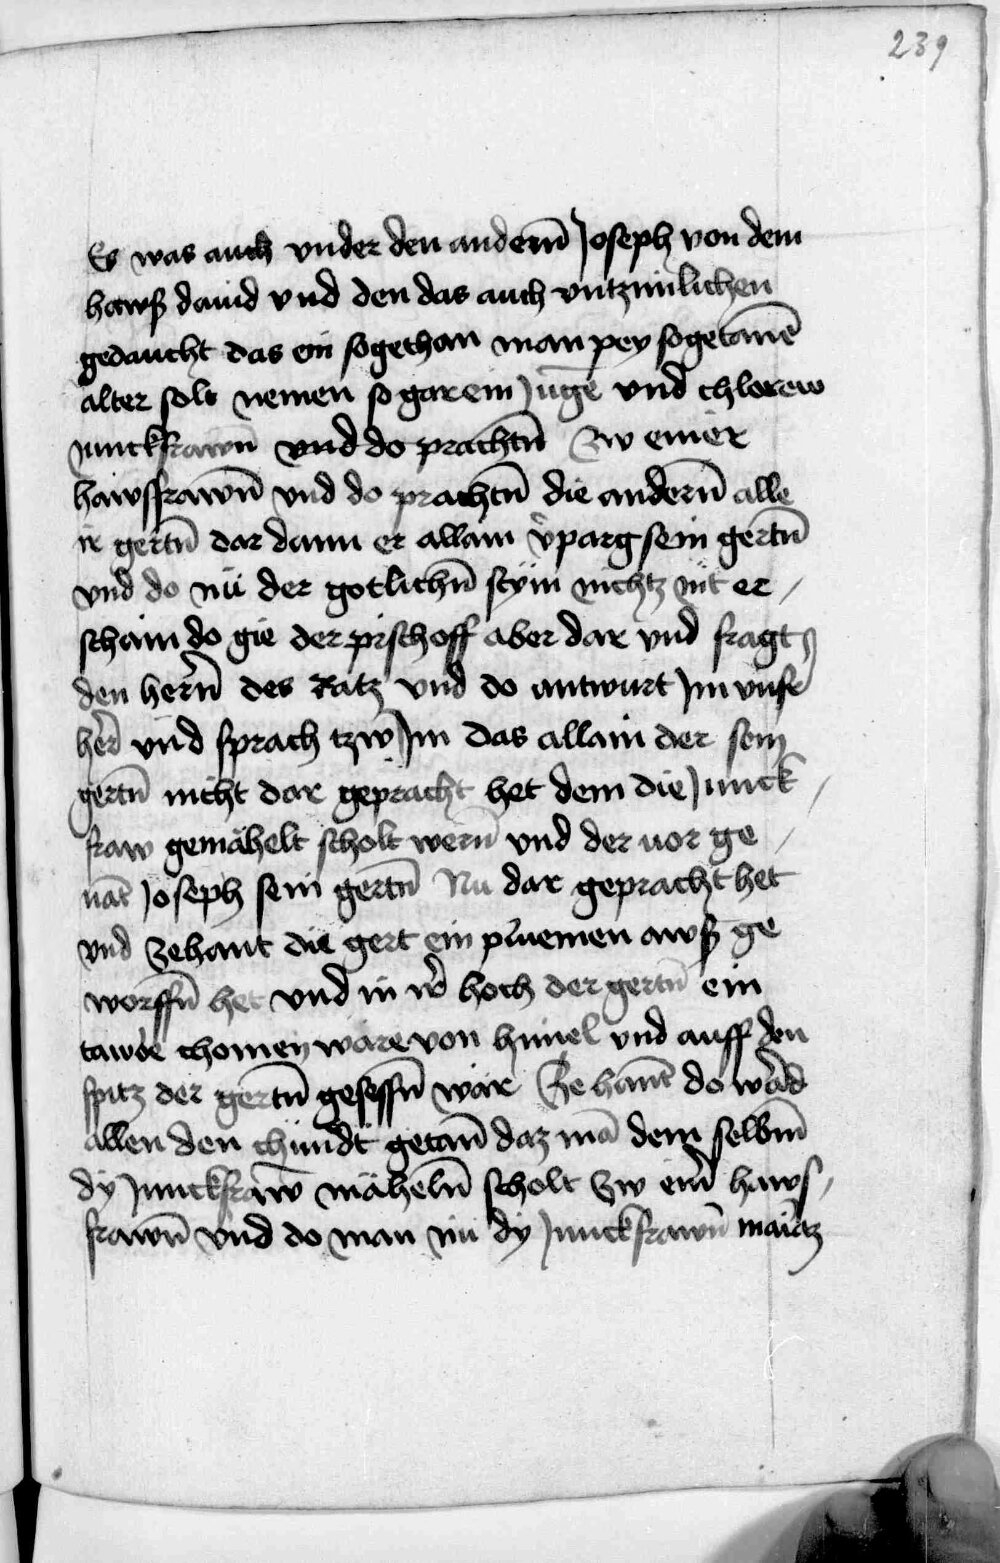 239
Es was auch vnder den andern̄ Joseph von dem
hawß dauid vnd den das auch vntzimlichen
gedaucht das ein sogethan man pey sogetanē
alter solt nemen so gar ein Jūge vnd chlorew
Junckfrawn̄ vnd do prachtn̄ Zw einer
hawsfrawn̄ vnd do prachtn̄ die andern̄ alle
ir gertn̄ dar dann er allain v̾parg sein gertn̄
vnd do nü der gotlichn̄ stym nichtz nit er-
schain do gie der pischoff aber dar vnd fragt
den her̄n des Ratz vnd do antwurt Im vnser̾
her̾ vnd sprach tzw Im das allain der sein
gertn̄ nicht dar gepracht het dem die Junck-
fraw gemähelt scholt wern̄ vnd der vor ge-
nāt Joseph sein gertn̄ Nu dar gepracht het
vnd Zehant die gert ein pluemen awß ge
worffn̄ het vnd in d̾ hoch der gertn̄ ein
tawbe chomen ware von himel vnd auff den
spitz der gertn̄ gesessn̄ wär Ze hant do ward
allen den chündt getan̄ daz mā dem selbm̄
dy Junckfraw māheln̄ scholt Zw ein̾ haws-
frawn̄ vnd do man nü dy Junckfrawn̄ mariā